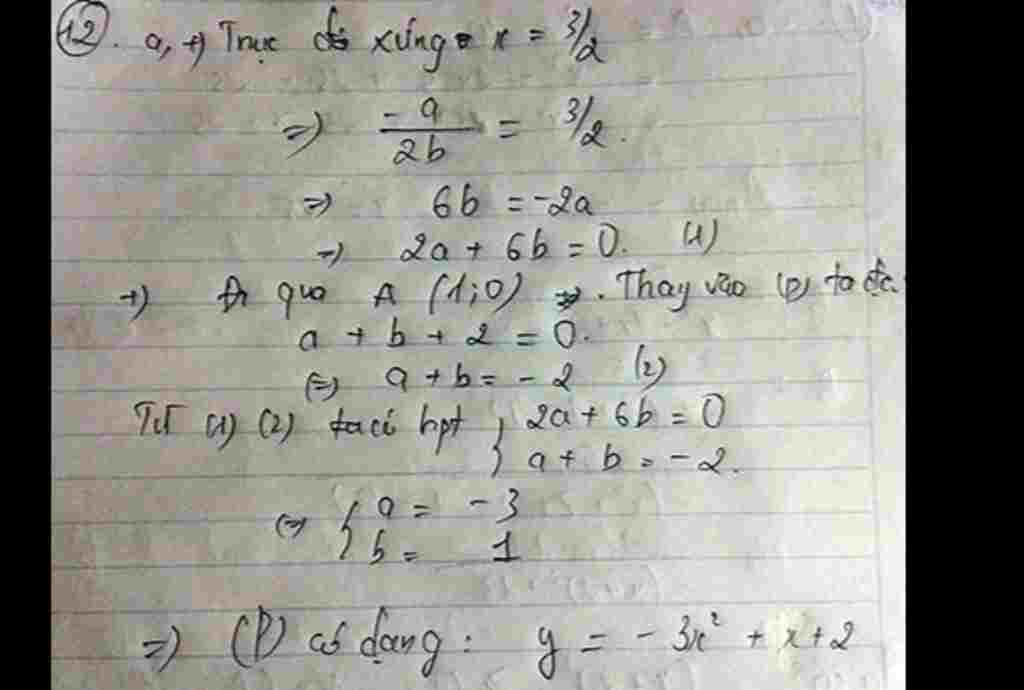 12. a, +) Trục đố xứng x = 3/2
=> -a/2b = 3/2.
=> 6b = -2a
=> 2a + 6b = 0. (1)
+) Đi qua A (1;0) => . Thay vào (P) ta đc
a + b + 2 = 0.
(=) a + b = - 2 (2)
Từ (1) (2) ta có hpt { 2a + 6b = 0
a + b = - 2.
(=) { a = - 3
b = 1
=) (P) có dạng : y = - 3x² + x + 2